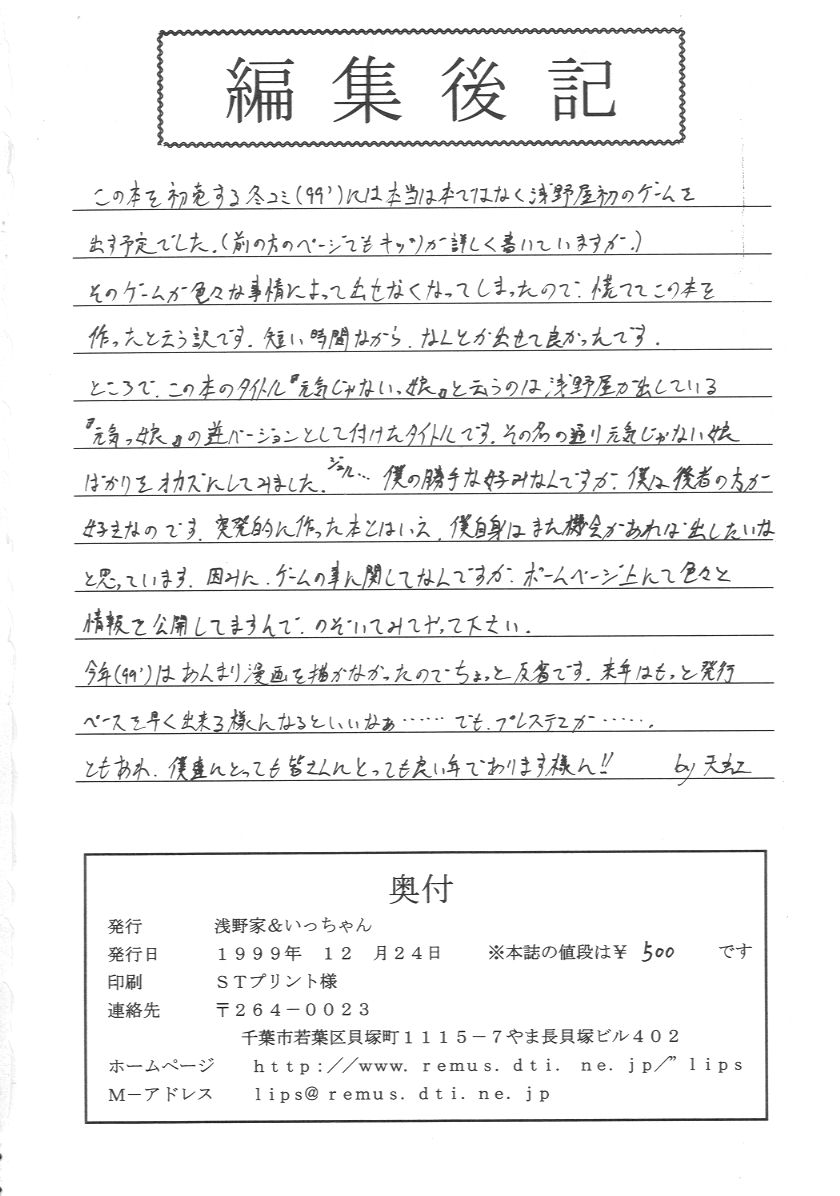 編集後記
この本を初売する冬コミ(99')には本当は本ではなく浅野屋初のゲームを
出す予定でした.(前の方のページでもキッツが詳しく書いていますが.)
そのゲームが色々な事情によって出せなくなってしまったので、慌ててこの本を
作ったと云う訳です. 短い時間ながら、なんとか出せて良かったです.
ところで、この本のタイトル『元気じゃないっ娘』と云うのは浅野屋が出している
『元気っ娘』の逆バージョンとして付けたタイトルです. その名の通り元気じゃない娘
ばかりをオカズにしてみました. 僕の勝手な好みなんですが、僕は後者の方が
好きなのです. 突発的に作った本とはいえ、僕自身はまた機会があれば出したいな
と思っています. 因みに、ゲームの事に関してなんですが、ホームページ上にて色々と
情報を公開してますんで、のぞいてみてやって下さい.
今年(99')はあんまり漫画を描かなかったのでちょっと反省です. 来年はもっと発行
ペースを早く出来る様になるといいなぁ…… でも、プレステ2が…….
ともあれ、僕達にとっても皆さんにとっても良い年であります様に!! by 天虹
奥付
発行 浅野家&いっちゃん
発行日 1999年 12月24日 ※本誌の値段は¥ 500 です
印刷 STプリント様
連絡先 〒264-0023
千葉市若葉区貝塚町1115-7やま長貝塚ビル402
ホームページ http://www.remus.dti.ne.jp/"lips
M-アドレス lips@remus.dti.ne.jp